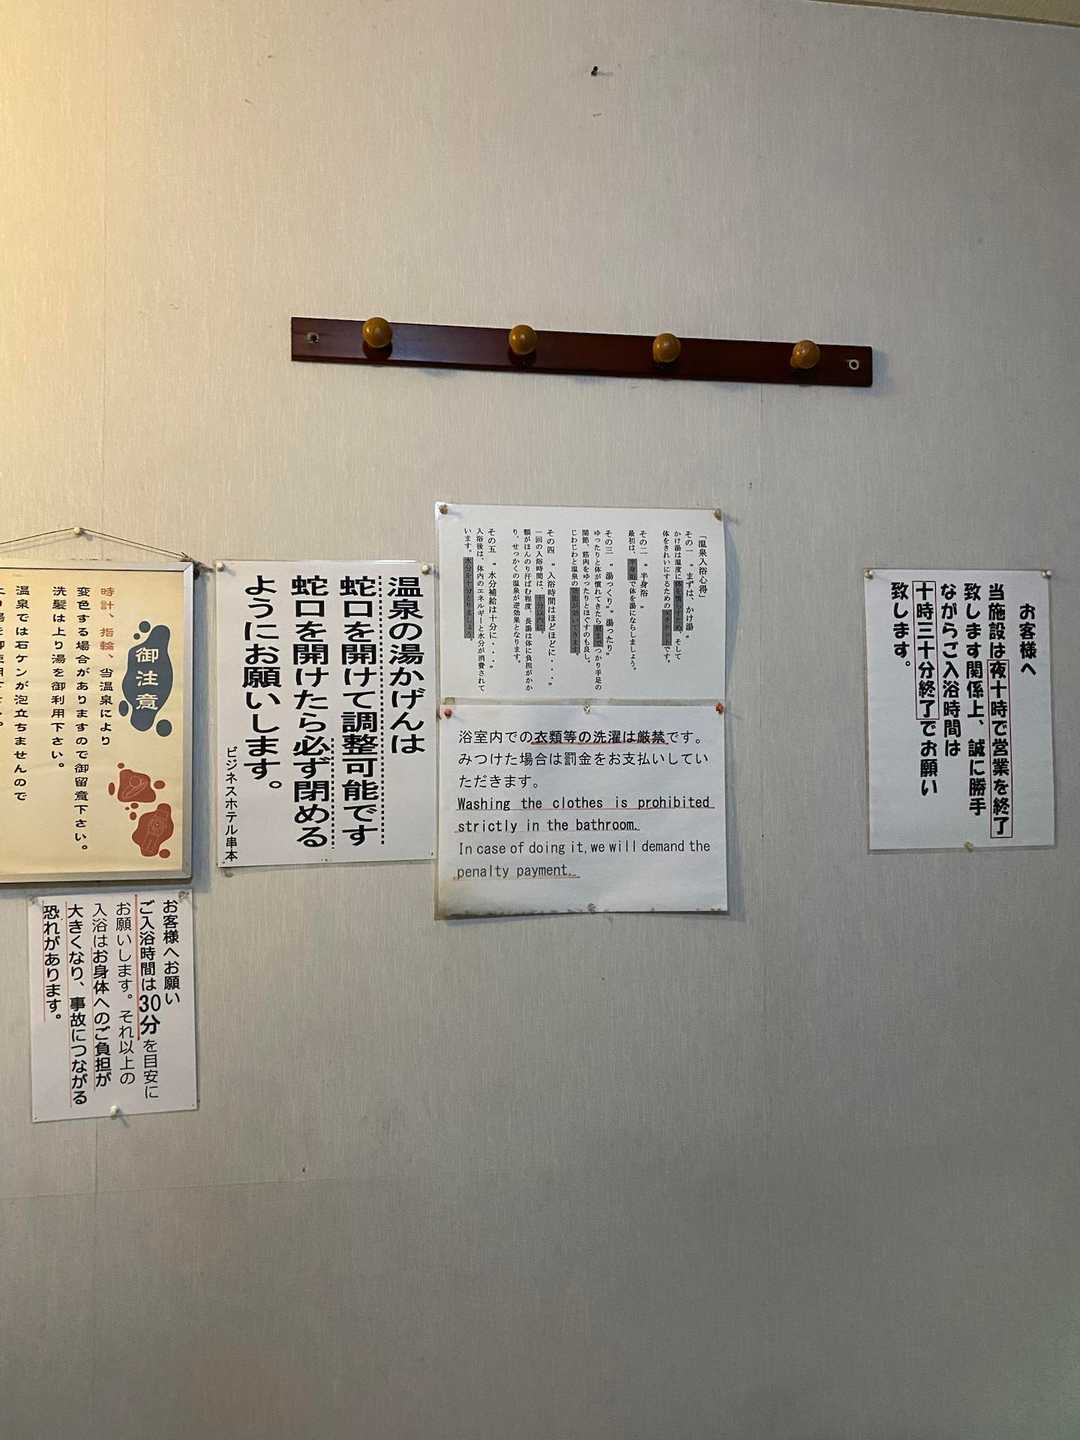 御注意
時計、指輪、当温泉により
変色する場合がありますので御留意下さい。
洗髪は上り湯を御利用下さい。
温泉では石ケンが泡立ちませんので
お客様へお願い
ご入浴時間は30分を目安に
お願いします。それ以上の
入浴はお身体へのご負担が
大きくなり、事故につながる
恐れがあります。
温泉の湯かげんは
蛇口を開けて調整可能です
蛇口を開けたら必ず閉める
ようにお願いします。
ビジネスホテル串本
「温泉入浴心得」
その一 〝まずは、かけ湯〟
かけ湯は温度に体を慣らすため、そして
体をきれいにするための
です。
その二 〝半身浴〟
最初は、半身浴で体を湯にならしましょう。
その三 〝湯っくり〟〝湯ったり〟
ゆったりと体が慣れてきたら肩までつかり手足の
関節、筋肉をゆったりとほぐすのも良し。
じわじわと温泉の
その四 〝入浴時間はほどほどに・・・〟
一回の入浴時間は、十分以内に
額がほんのり汗ばむ程度、長湯は体に負担がかか
り、せっかくの温泉が逆効果となります。
その五 〝水分補給は十分に・・・〟
入浴後は、体内のエネルギーと水分が消費されて
います。水分を十分とりましょう。
浴室内での衣類等の洗濯は厳禁です。
みつけた場合は罰金をお支払いしてい
ただきます。
Washing the clothes is prohibited
strictly in the bathroom.
In case of doing it, we will demand the
penalty payment.
お客様へ
当施設は夜十時で営業を終了
致します関係上、誠に勝手
ながらご入浴時間は
十時三十分終了でお願い
致します。